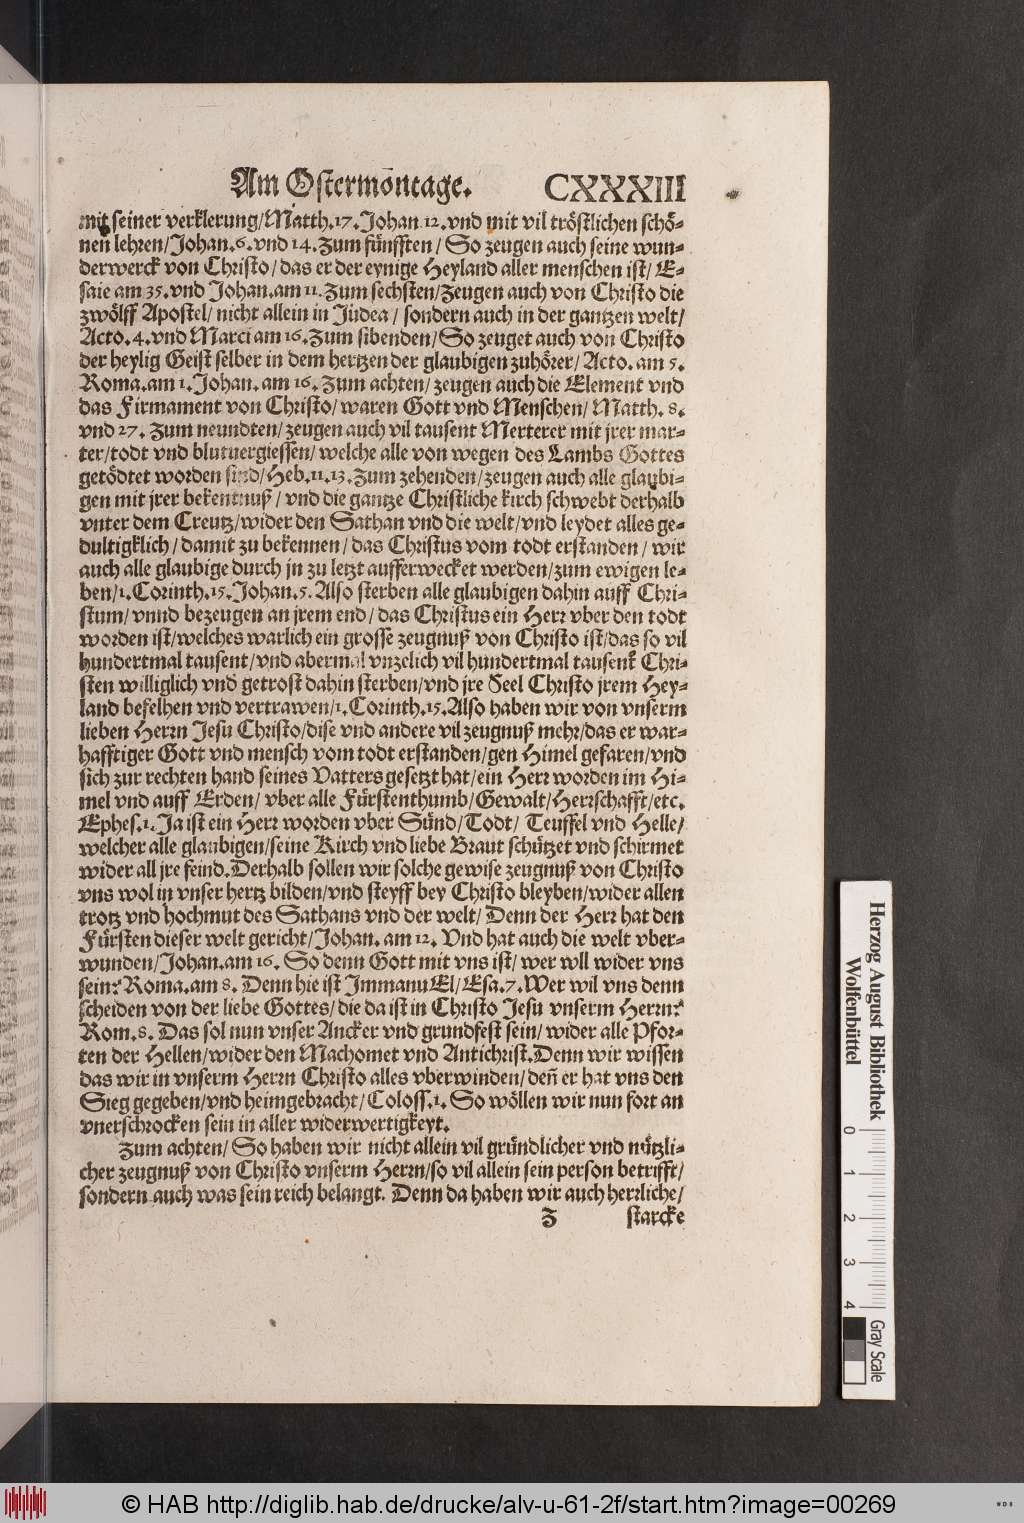 Am Ostermontage. CXXXIII
mit seiner verklerung/Matth.17.Johan.12.vnd mit vil tröstlichen schö-
nen lehren/Johan.6.vnd 14.Zum fünfften/ So zeugen auch seine wun-
derwerck von Christo/das er der eynige Heyland aller menschen ist/ E-
saie am 35.vnd Johan.am 11.Zum sechsten/Zeugen auch von Christo die
zwölff Apostel/ nicht allein in Judea/ sondern auch in der gantzen welt/
Acto.4.vnd Marci am 16.Zum sibenden/So zeuget auch von Christo
der heylig Geist selber in dem hertzen der glaubigen zuhörer/Acto. am 5.
Roma.am 1.Johan.am 16.Zum achten/zeugen auch die Element vnd
das Firmament von Christo/waren Gott vnd Menschen/Matth.8.
vnd 27. Zum neundten/zeugen auch vil tausent Merterer mit jrer mar-
ter/todt vnd blutuergiessen/welche alle von wegen des Lambs Gottes
getödtet worden sind/Heb.11.13.Zum zehenden/zeugen auch alle glaubi-
gen mit jrer bekentnuß/vnd die gantze Christliche kirch schwebt derhalb
vnter dem Creutz/wider den Sathan vnd die welt/vnd leydet alles ge-
dultigklich/damit zu bekennen/das Christus vom todt erstanden/wir
auch alle glaubige durch jn zu letzt aufferwecket werden/zum ewigen le-
ben/1.Corinth.15.Johan.5.Also sterben alle glaubigen dahin auff Chri-
stum/vnnd bezeugen an jrem end/das Christus ein Herr vber den todt
worden ist/welches warlich ein grosse zeugnuß von Christo ist/das so vil
hundertmal tausent/vnd abermal vnzelich vil hundertmal tausent Chri-
sten williglich vnd getrost dahin sterben/vnd jre Seel Christo jrem Hey-
land befelhen vnd vertrawen/1.Corinth.15.Also haben wir von vnserm
lieben Herrn Jesu Christo/dise vnd andere vil zeugnuß mehr/das er war-
hafftiger Gott vnd mensch vom todt erstanden/gen Himel gefaren/vnd
sich zur rechten hand seines Vatters gesetzt hat/ein Herr worden im Hi-
mel vnd auff Erden/ vber alle Fürstenthumb/Gewalt/Herrschafft/etc.
Ephes.1.Ja ist ein Herr worden vber Sünd/Todt/ Teuffel vnd Helle/
welcher alle glaubigen/seine Kirch vnd liebe Braut schützet vnd schirmet
wider all jre feind.Derhalb sollen wir solche gewise zeugnuß von Christo
vns wol in vnser hertz bilden/vnd steyff bey Christo bleyben/wider allen
trotz vnd hochmut des Sathans vnd der welt/ Denn der Herr hat den
Fürsten dieser welt gericht/Johan. am 12. Vnd hat auch die welt vber-
wunden/Johan.am 16. So denn Gott mit vns ist/ wer wll wider vns
sein? Roma.am 8. Denn hie ist JmmanuEl/Esa.7.Wer wil vns denn
scheiden von der liebe Gottes/die da ist in Christo Jesu vnserm Herrn?
Rom.8. Das sol nun vnser Ancker vnd grundfest sein/wider alle Pfor-
ten der Hellen/wider den Machomet vnd Antichrist.Denn wir wissen
das wir in vnserm Herrn Christo alles vberwinden/deñ er hat vns den
Sieg gegeben/vnd heimgebracht/Coloss.1. So wöllen wir nun fort an
vnerschrocken sein in aller widerwertigkeyt.
Zum achten/ So haben wir nicht allein vil gründlicher vnd nützli-
cher zeugnuß von Christo vnserm Herrn/so vil allein sein person betrifft/
sondern auch was sein reich belangt. Denn da haben wir auch herrliche/
Z starcke
Herzog August Bibliothek
Wolfenbüttel
0 1 2 3 4
Gray Scale
© HAB http://diglib.hab.de/drucke/alv-u-61-2f/start.htm?image=00269
WDB